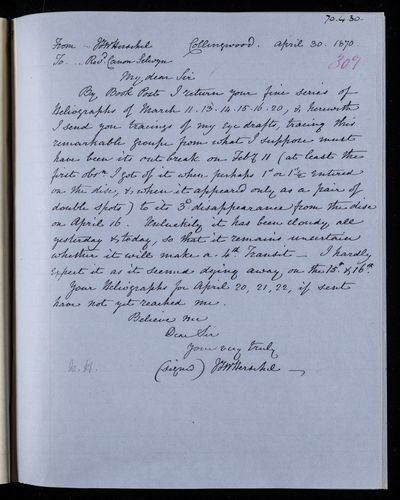 70.4.30.
From JFWHerschel Collingwood. April 30. 1870.
To .. Revd. Canon Selwyn 307
My dear Sir
By Book Post I return your fine series of
Heliographs of March 11.13.14.15.16.20, & herewith
I send you tracings of my eye drafts, tracing this
remarkable group from what I suppose must
have been its out break on Feby 11 (at least the
first obsn I got of it when perhaps 1d or entered
on the disc, & when it appeared only as a pair of
double spots) to its 3d disappearance from the disc
on April 16. Unluckily it has been cloudy all
yesterday & today, so that it remains uncertain
whether it will make a 4th Transit — I hardly
expect it as it seemed dying away on the 15th & 16th.
Your Heliographs for April 20, 21, 22, if sent
have not yet reached me.
Believe me
Dear Sir
Yours very truly
(signed) JFWHerschel —